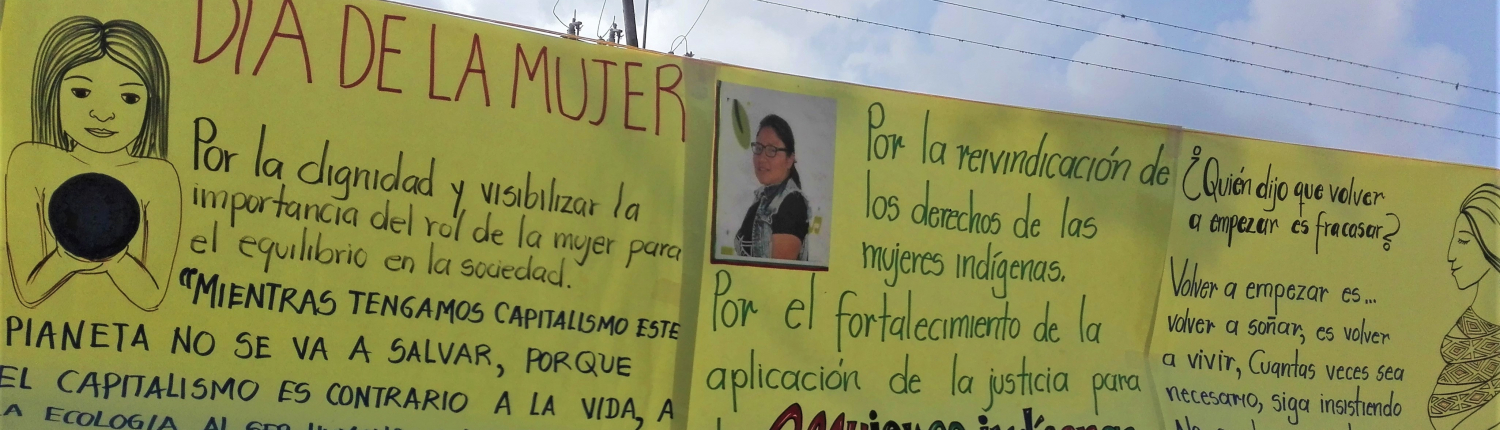 DIA DE LA MUJER
Por la dignidad y visibilizar la
importancia del rol de la mujer para
el equilibrio en la sociedad.
"MIENTRAS TENGAMOS CAPITALISMO ESTE
PLANETA NO SE VA A SALVAR, PORQUE
EL CAPITALISMO ES CONTRARIO A LA VIDA, A
LA ECOLOGÍA, AL SER
Por la reivindicación de
los derechos de las
mujeres indígenas.
Por el fortalecimiento de la
aplicación de la justicia para
mujeres indígenas
¿Quién dijo que volver
a empezar es fracasar?
Volver a empezar es...
volver a soñar, es volver
a vivir, Cuantas veces sea
necesario, siga insistiendo
No